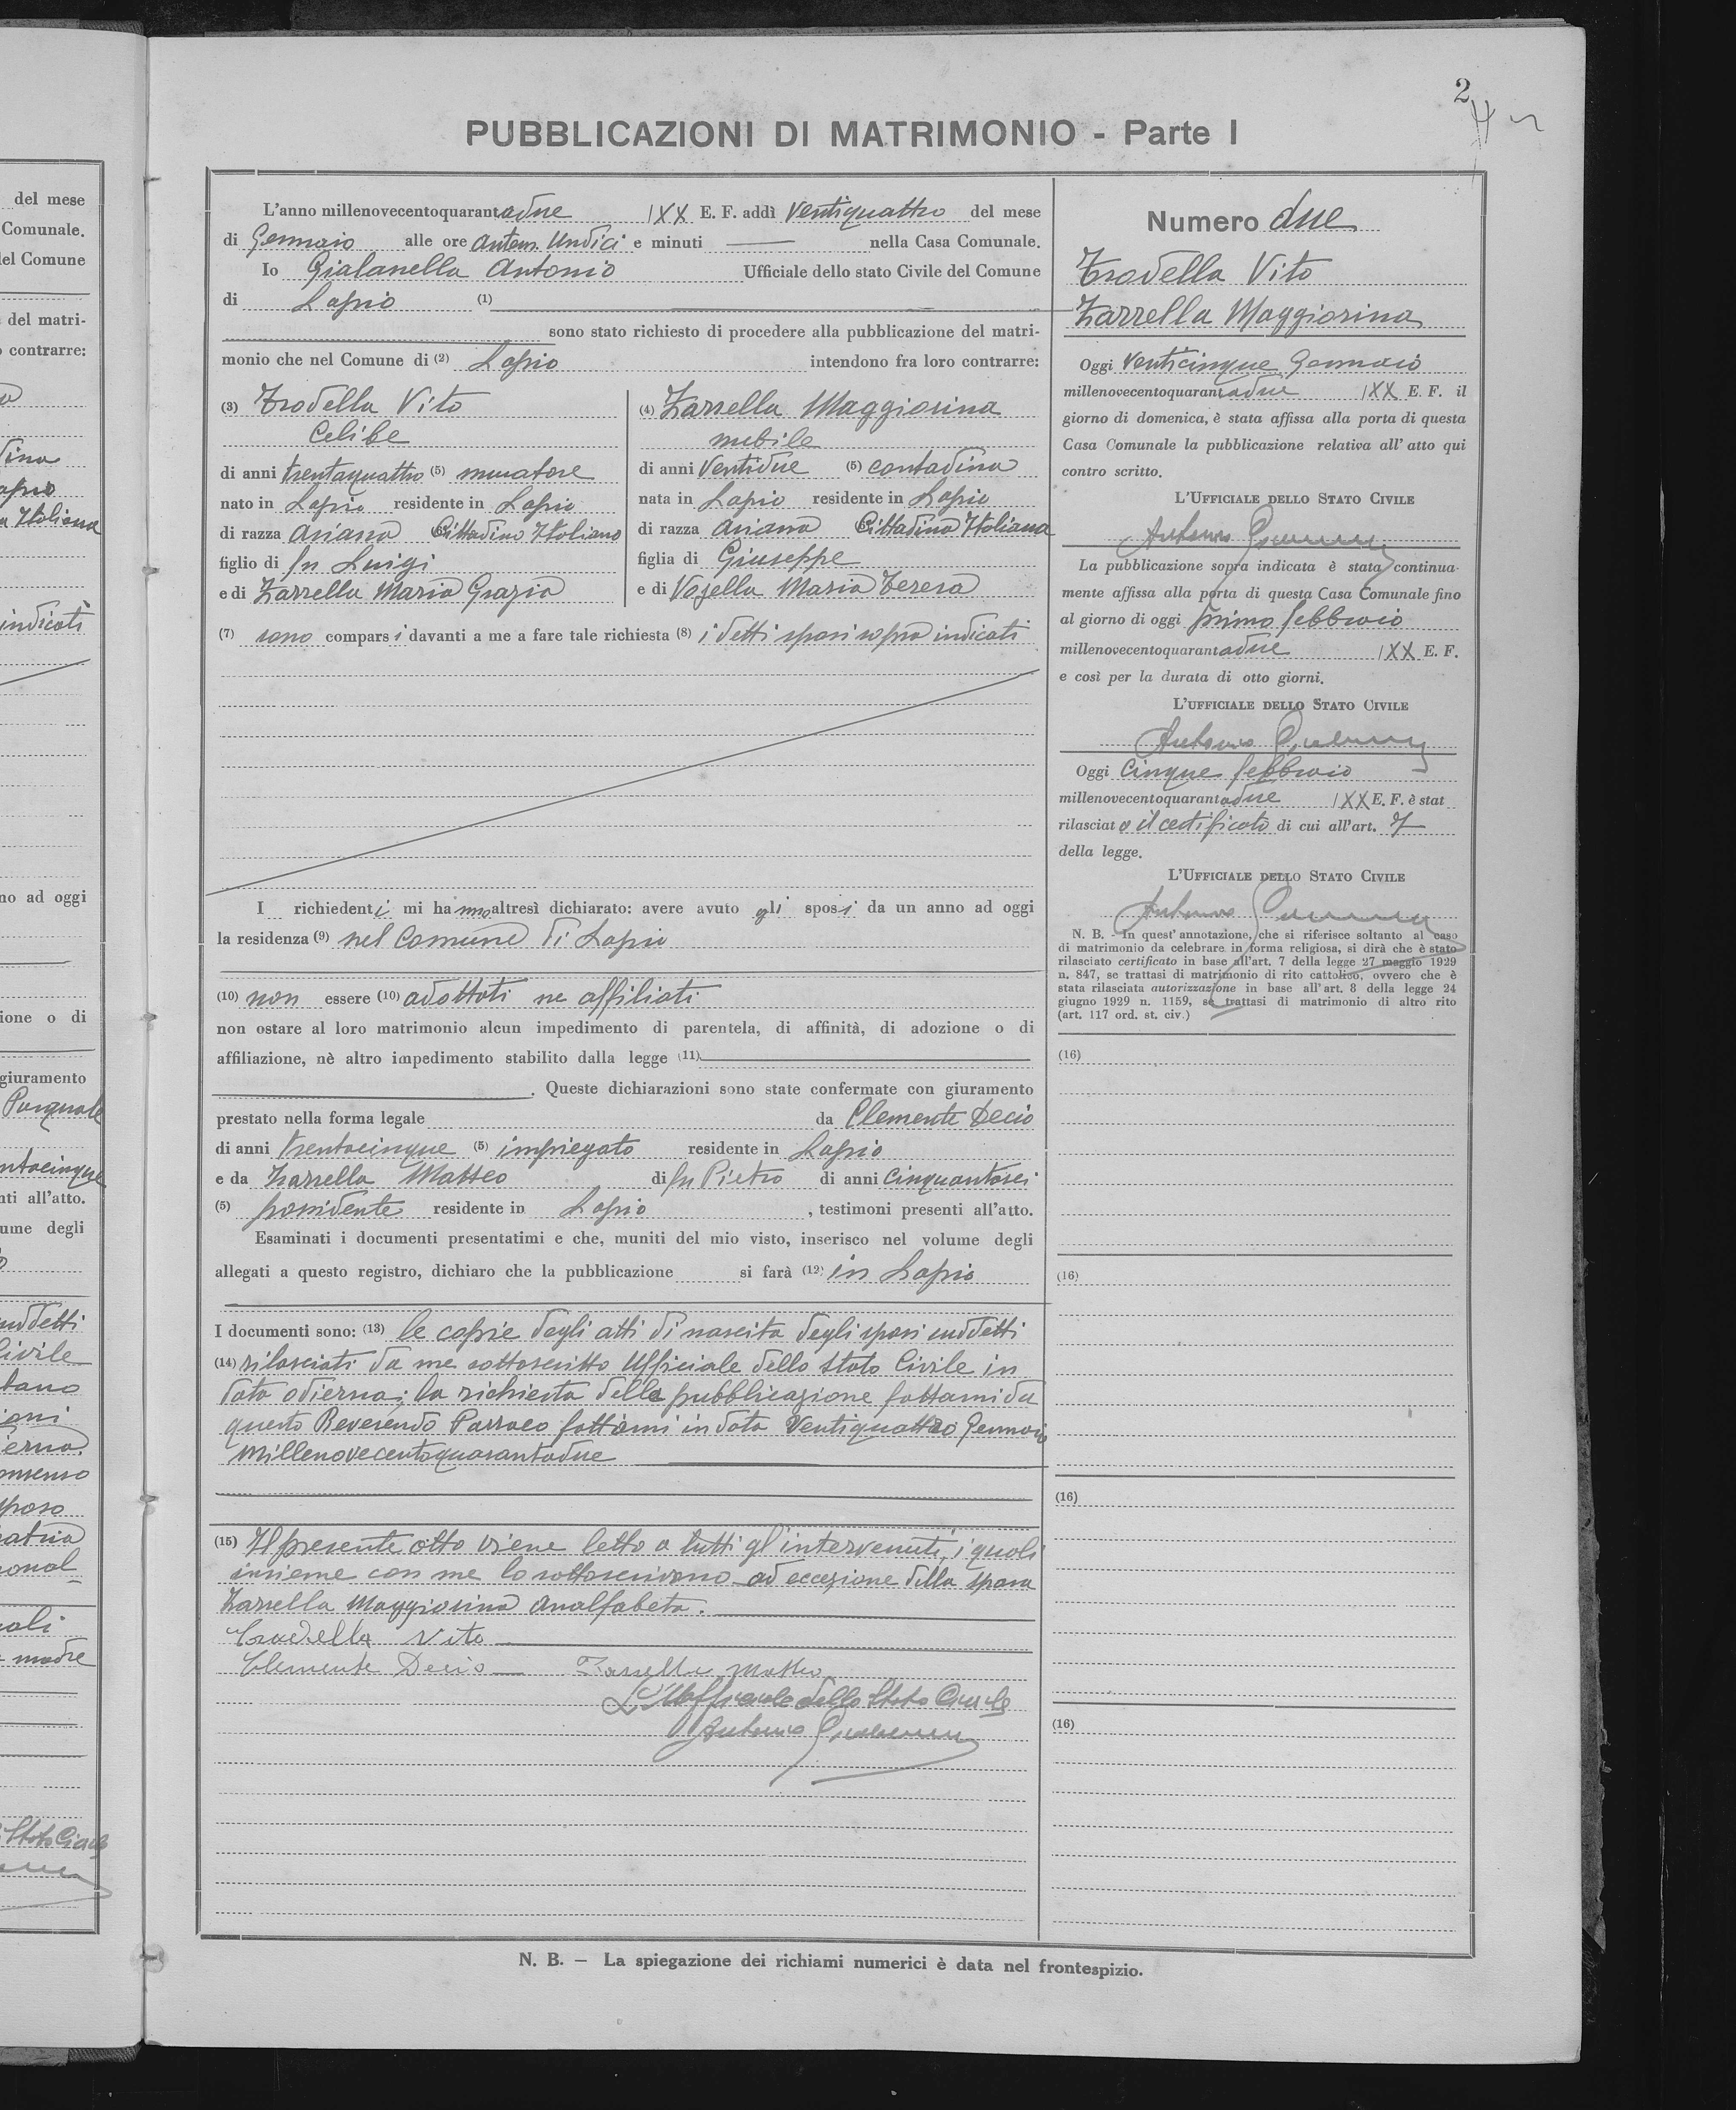 del mese
Comunale.
del Comune
del matri-
contrarre:
Italiana
indicati
no ad oggi
ione o di
giuramento
Pasquale
ntacinque
nti all'atto.
ume degli
suddetti
Civile
sposo
madre
2
PUBBLICAZIONI DI MATRIMONIO - Parte I
L'anno millenovecentoquarantadue XX E. F. addì ventiquattro del mese
di Gennaio alle ore antem. undici e minuti — nella Casa Comunale.
Io Gialanella Antonio Ufficiale dello stato Civile del Comune
di Lapio (1)
sono stato richiesto di procedere alla pubblicazione del matri-
monio che nel Comune di (2) Lapio intendono fra loro contrarre:
(3) Trodella Vito
Celibe
di anni trentaquattro (5) muratore
nato in Lapio residente in Lapio
di razza ariana Cittadino Italiano
figlio di fu Luigi
e di Zarrella Maria Grazia
(4) Zarrella Maggiorina
nubile
di anni Ventidue (5) contadina
nata in Lapio residente in Lapio
di razza ariana Cittadina Italiana
figlia di Giuseppe
e di Vozella Maria Teresa
(7) sono comparsi davanti a me a fare tale richiesta (8) i detti sposi sopra indicati
I richiedenti mi hanno altresì dichiarato: avere avuto gli sposi da un anno ad oggi
la residenza (9) nel Comune di Lapio
(10) non essere (10) adottati ne affiliati
non ostare al loro matrimonio alcun impedimento di parentela, di affinità, di adozione o di
affiliazione, nè altro impedimento stabilito dalla legge (11)
. Queste dichiarazioni sono state confermate con giuramento
prestato nella forma legale da Clemente Decio
di anni trentacinque (5) impiegato residente in Lapio
e da Zarrella Matteo di fu Pietro di anni cinquantasei
(5) possidente residente in Lapio , testimoni presenti all'atto.
Esaminati i documenti presentatimi e che, muniti del mio visto, inserisco nel volume degli
allegati a questo registro, dichiaro che la pubblicazione si farà (12) in Lapio
I documenti sono: (13) le copie degli atti di nascita degli sposi suddetti
(14) rilasciati da me sottoscritto Ufficiale dello Stato Civile in
data odierna; la richiesta della pubblicazione fattami da
questo Reverendo Parroco fattami in data Ventiquattro Gennaio
millenovecentoquarantadue
(15) Il presente atto viene letto a tutti gl'intervenuti, i quali
insieme con me lo sottoscrivono ad eccezione della sposa
Zarrella Maggiorina analfabeta.
Trodella Vito
Clemente Decio Zarrella Matteo
L'Ufficiale dello Stato Civile
Antonio
Numero due
Trodella Vito
Zarrella Maggiorina
Oggi Venticinque Gennaio
millenovecentoquarantadue XX E. F. il
giorno di domenica, è stata affissa alla porta di questa
Casa Comunale la pubblicazione relativa all'atto qui
contro scritto.
L'UFFICIALE DELLO STATO CIVILE
Antonio
La pubblicazione sopra indicata è stata continua-
mente affissa alla porta di questa Casa Comunale fino
al giorno di oggi primo febbraio
millenovecentoquarantadue XX E. F.
e così per la durata di otto giorni.
L'UFFICIALE DELLO STATO CIVILE
Antonio
Oggi Cinque febbraio
millenovecentoquarantadue XX E. F. è stat
rilasciato il certificato di cui all'art. 7
della legge.
L'UFFICIALE DELLO STATO CIVILE
Antonio
N. B. - In quest'annotazione, che si riferisce soltanto al caso
di matrimonio da celebrare in forma religiosa, si dirà che è stato
rilasciato certificato in base all'art. 7 della legge 27 maggio 1929
n. 847, se trattasi di matrimonio di rito cattolico, ovvero che è
stata rilasciata autorizzazione in base all'art. 8 della legge 24
giugno 1929 n. 1159, se trattasi di matrimonio di altro rito
(art. 117 ord. st. civ.)
(16)
(16)
(16)
(16)
N. B. — La spiegazione dei richiami numerici è data nel frontespizio.